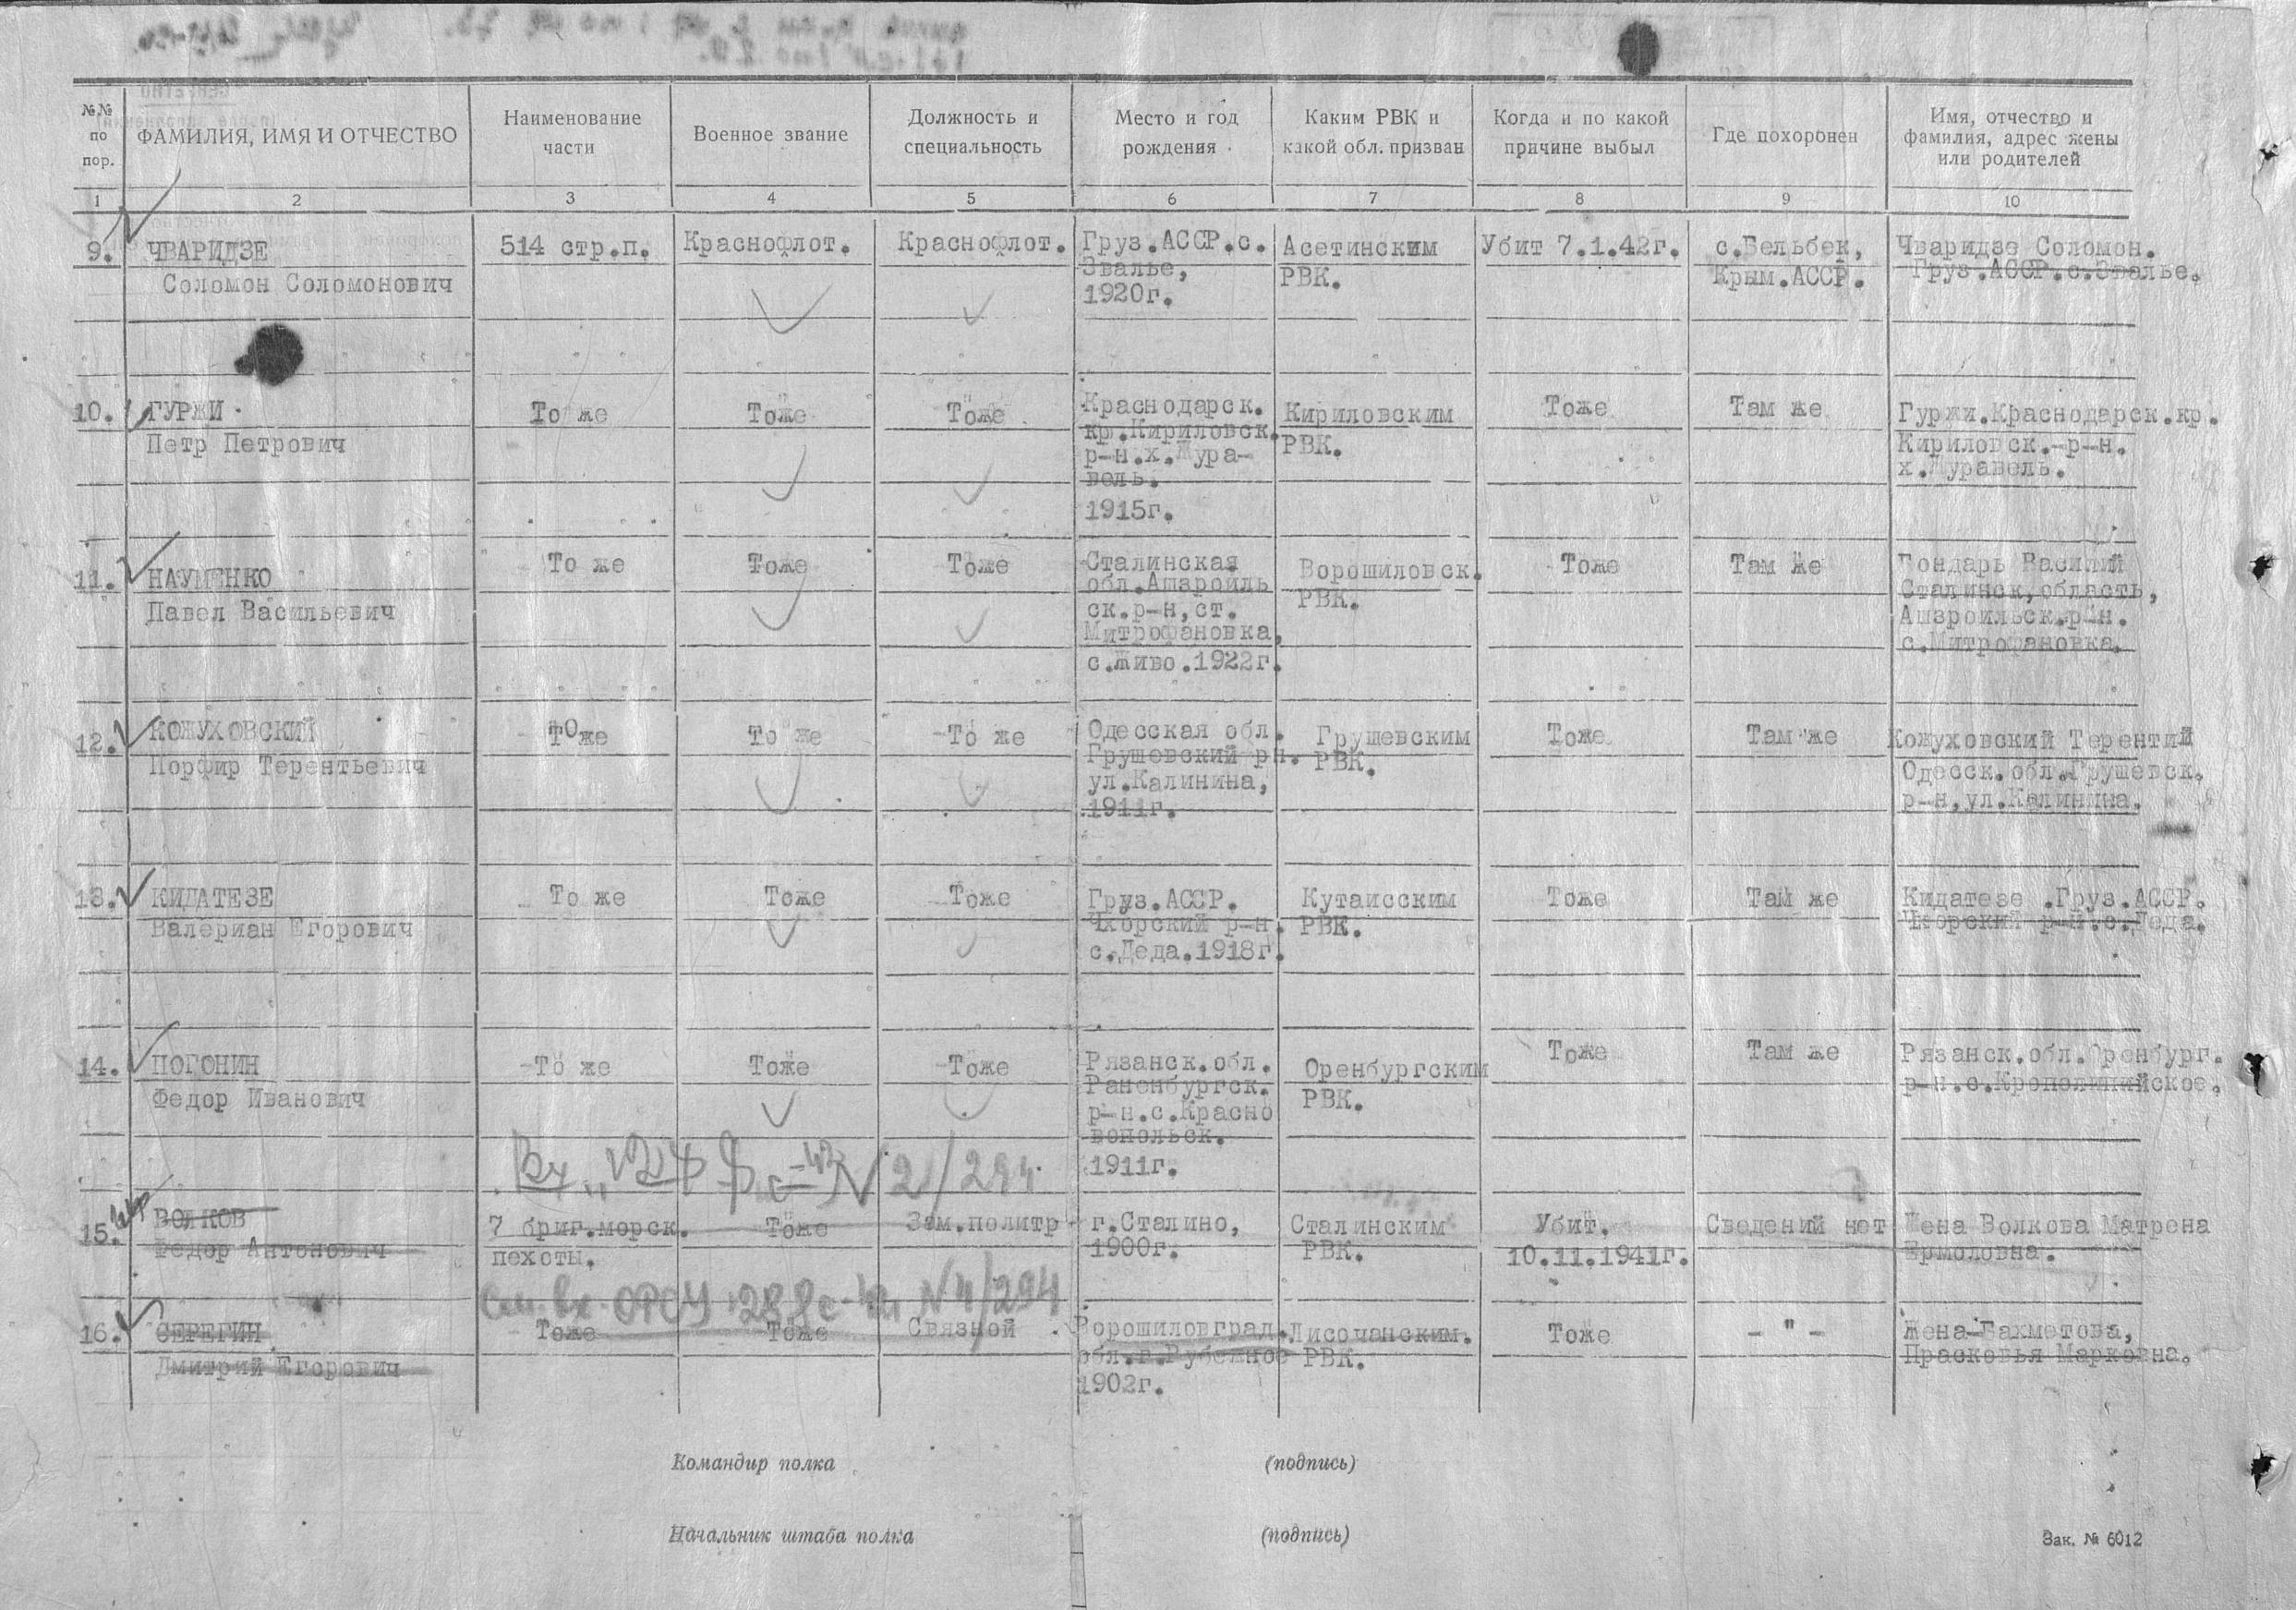 №№ по пор.
ФАМИЛИЯ, ИМЯ И ОТЧЕСТВО
Наименование части
Военное звание
Должность и специальность
Место и год рождения
Каким РВК и какой обл. призван
Когда и по какой причине выбыл
Где похоронен
Имя, отчество и фамилия, адрес жены или родителей
1 2 3 4 5 6 7 8 9 10
9.
ЧВАРИДЗЕ
Соломон Соломонович
514 стр.п.
Краснофлот.
Краснофлот.
Груз.АССР.с.
Звалье,
1920г.
Асетинским
РВК.
Убит 7.1.42г.
с.Бельбек,
Крым.АССР.
Чваридзе Соломон.
Груз.АССР.с.Звалье.
10.
ГУРЖИ
Петр Петрович
То же
Тоже
Тоже
Краснодарск.
кр.Кириловск.
р-н.х.Жура-
вель.
1915г.
Кириловским
РВК.
Тоже
Там же
Гуржи.Краснодарск.кр.
Кириловск.-р-н.
х.Журавель.
11.
НАУМЕНКО
Павел Васильевич
То же
Тоже
Тоже
Сталинская
обл.Ашзроиль
ск.р-н,ст.
Митрофановка,
с.Живо.1922г.
Ворошиловск.
РВК.
Тоже
Там же
Бондарь Василий
Сталинск,область,
Ашзроильск.р-н.
с.Митрофановка.
12.
КОЖУХОВСКИЙ
Порфир Терентьевич
То же
То же
-То же
Одесская обл.
Грушевский рн.
ул.Калинина,
1911г.
Грушевским
РВК.
Тоже
Там же
Кожуховский Терентий
Одесск.обл.Грушевск.
р-н,ул.Калинина.
13.
КИДАТЕЗЕ
Валериан Егорович
То же
Тоже
Тоже
Груз.АССР.
Чхорский р-н.
с.Деда.1918г.
Кутаисским
РВК.
Тоже
Там же
Кидатезе .Груз.АССР.
Чхорский р-н.с.Деда.
14.
ПОГОНИН
Федор Иванович
-То же
Тоже
-Тоже
Рязанск.обл.
Раненбургск.
р-н.с.Красно
вопольск.
1911г.
Оренбургским
РВК.
Тоже
Там же
Рязанск.обл.Оренбург.
р-н.с.
№ 2/294
15.
ВОЛКОВ
Федор Антонович
7 бриг.морск.
пехоты.
Тоже
Зам.политр
г.Сталино,
1900г.
Сталинским
РВК.
Убит.
10.11.1941г.
Сведений нет
Жена Волкова Матрена
Ермоловна.
№4/294
16.
СЕРЕГИН
Дмитрий Егорович
Тоже
Тоже
Связной
Ворошиловград.
обл.г.Рубежное
1902г.
Лисочанским.
РВК.
Тоже
-"-
Жена-Бахметова,
Прасковья Марковна.
Командир полка (подпись)
Начальник штаба полка (подпись)
Зак. № 6012